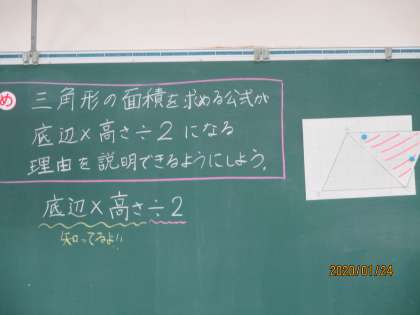 め
三角形の面積を求める公式が
底辺×高さ÷2になる
理由を説明できるようにしよう。
底辺×高さ÷2
知ってるよ!!
2020/01/24